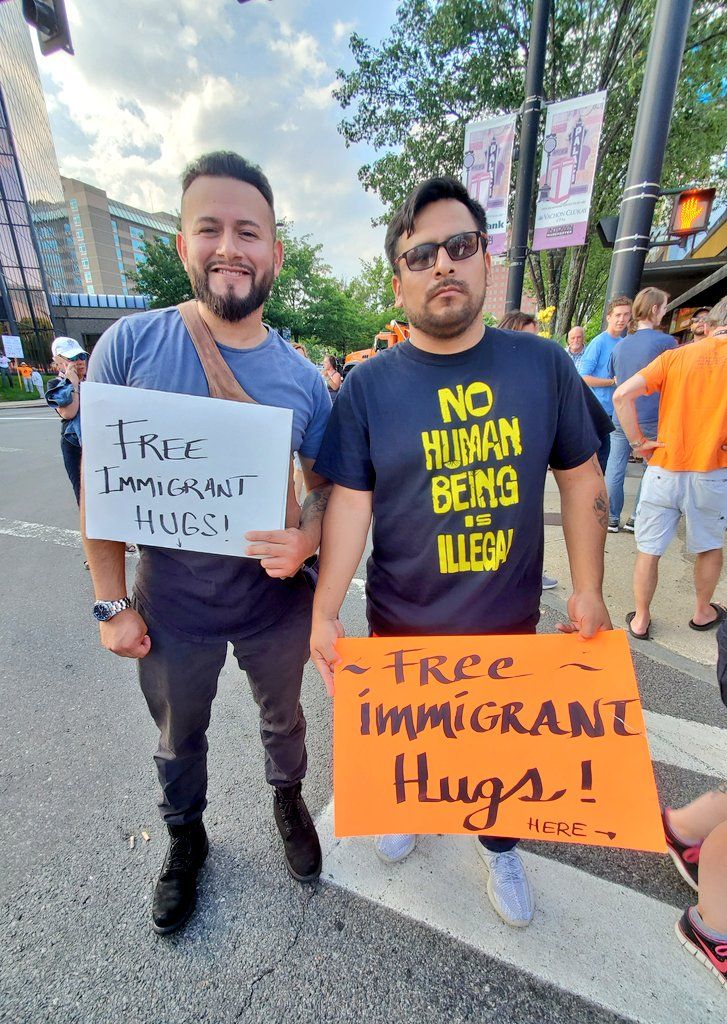 FREE
IMMIGRANT
HUGS!
NO
HUMAN
BEING
IS
ILLEGAL
~ FREE ~
IMMIGRANT
Hugs!
HERE →
nk
VACHON CLUKAY